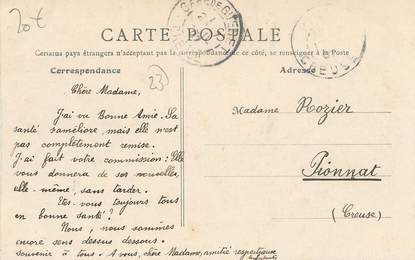 20€
CARTE POSTALE
Certains pays étrangers n'acceptant pas la correspondance de ce côté, se renseigner à la Poste
Correspondance
Adresse
CREUSE
23
Chère Madame,
J'ai vu Bonne Amie. Sa
santé s'améliore, mais elle n'est
pas complètement remise.
J'ai fait votre commission: Elle
vous donnera de ses nouvelles,
elle-même, sans tarder.
Etes-vous toujours tous
en bonne santé?
Nous, nous sommes
encore sens dessus dessous.
Souvenir à tous. A vous, chère Madame, amitié respectueuse
Madame Rozier
Pionnat
(Creuse)